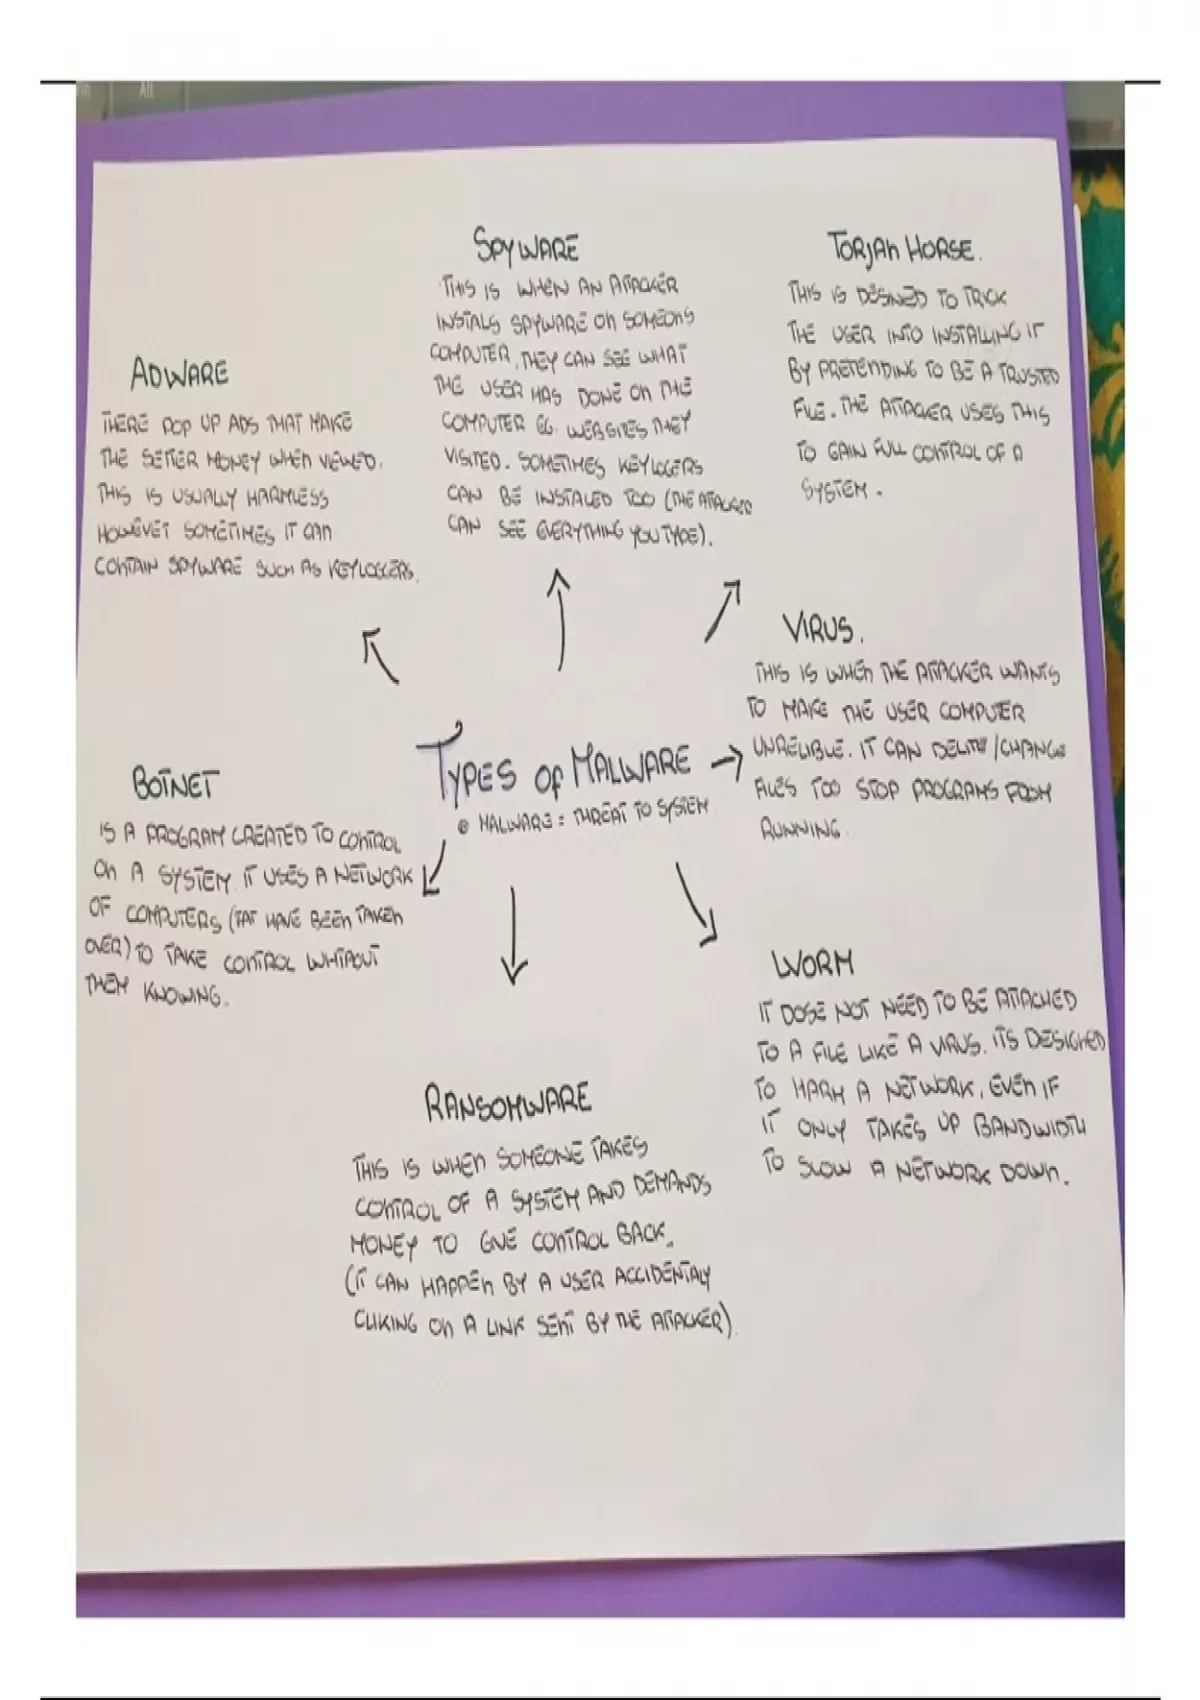 Alt
SPYWARE
THIS IS WHEN AN ATTACKER
INSTALS SPYWARE ON SOMEONS
COMPUTER. THEY CAN SEE WHAT
THE USER HAS DONE ON THE
COMPUTER EG. WEBSITES THEY
VISITED. SOMETIMES KEYLOGERS
CAN BE INSTALED TOO (THE ATTACKER
CAN SEE EVERYTHING YOU TYPE).
TORJAN HORSE.
THIS IS DESINED TO TRICK
THE USER INTO INSTALLING IT
BY PRETENDING TO BE A TRUSTED
FILE. THE ATTACKER USES THIS
TO GAIN FULL CONTROL OF A
SYSTEM.
ADWARE
THERE POP UP ADS THAT MAKE
THE SETTER MONEY WHEN VIEWED.
THIS IS USUALLY HARMLESS
HOWEVET SOMETIMES IT CAN
CONTAIN SPYWARE SUCH AS KEYLOGGERS.
VIRUS.
THIS IS WHEN THE ATTACKER WANTS
TO MAKE THE USER COMPUTER
UNRELIBLE. IT CAN DELITE/CHANGE
FILES TOO STOP PROGRAMS FROM
RUNNING.
TYPES OF MALWARE
MALWARE = THREAT TO SYSTEM
BOTNET
IS A PROGRAM CREATED TO CONTROL
ON A SYSTEM. IT USES A NETWORK
OF COMPUTERS (TAT HAVE BEEN TAKEN
OVER) TO TAKE CONTROL WHITAOUT
THEM KNOWING.
WORM
IT DOSE NOT NEED TO BE ATTACHED
TO A FILE LIKE A VIRUS. ITS DESIGHED
TO HARM A NETWORK, EVEN IF
IT ONLY TAKES UP BANDWIDTH
TO SLOW A NETWORK DOWN.
RANSOMWARE
THIS IS WHEN SOMEONE TAKES
CONTROL OF A SYSTEM AND DEMANDS
MONEY TO GIVE CONTROL BACK.
(IT CAN HAPPEN BY A USER ACCIDENTALY
CLIKING ON A LINK SENT BY THE ATTACKER).